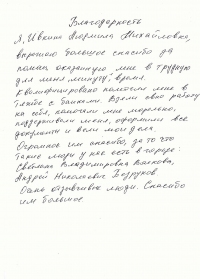 Благодарность
Я, Ивкина Людмила Михайловна,
выражаю большое спасибо за
помощь оказанную мне в трудную
для меня минуту, время.
Квалифицировано помогли мне в
тяжбе с банками. Взяли свою работу
на себя, помогали мне морально,
поддерживали меня, оформляли все
документы и вели мои дела.
Огромное им спасибо, за то что
такие люди у нас есть в городе:
Светлана Владимировна
Андрей Николаевич
Очень отзывчивые люди. Спасибо
им большое